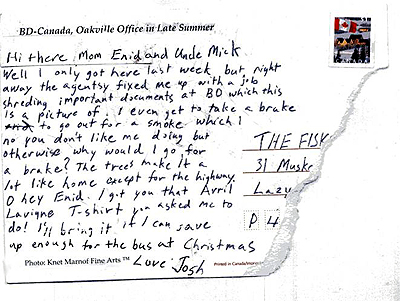 BD-Canada, Oakville Office in Late Summer
Hi there, Mom Enid and Uncle Mick
Well I only got here last week but right
away the agentsy fixed me up with a job
shreding important documents at BD which this
Is a picture of. I even get to take a brake
to go out for a smoke which I
no you don't like me doing but
otherwise why would I go for
a brake? The trees make it a
lot like home except for the highway.
O hey Enid. I got you that Avril
Lavigne T-shirt you asked me to
do! I'll bring it if I can save
up enough for the bus at Christmas
Love Josh
THE FISK
31 Muskr
Lazy
P 4
Photo: Knet Marnof Fine Arts ™
Printed in Canada/Imprim